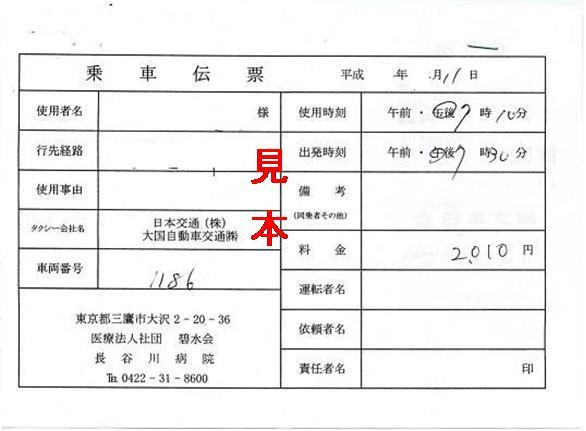 乗車伝票 平成 年 月11日
使用者名 様 使用時刻 午前・午後7時10分
行先経路 出発時刻 午前・午後7時30分
見本
使用事由 備考
(同乗者その他)
タクシー会社名 日本交通(株)
大国自動車交通㈱
料金 2,010円
車両番号 1186
運転者名
東京都三鷹市大沢2-20-36
医療法人社団 碧水会
長谷川病院
℡ 0422-31-8600
依頼者名
責任者名 印